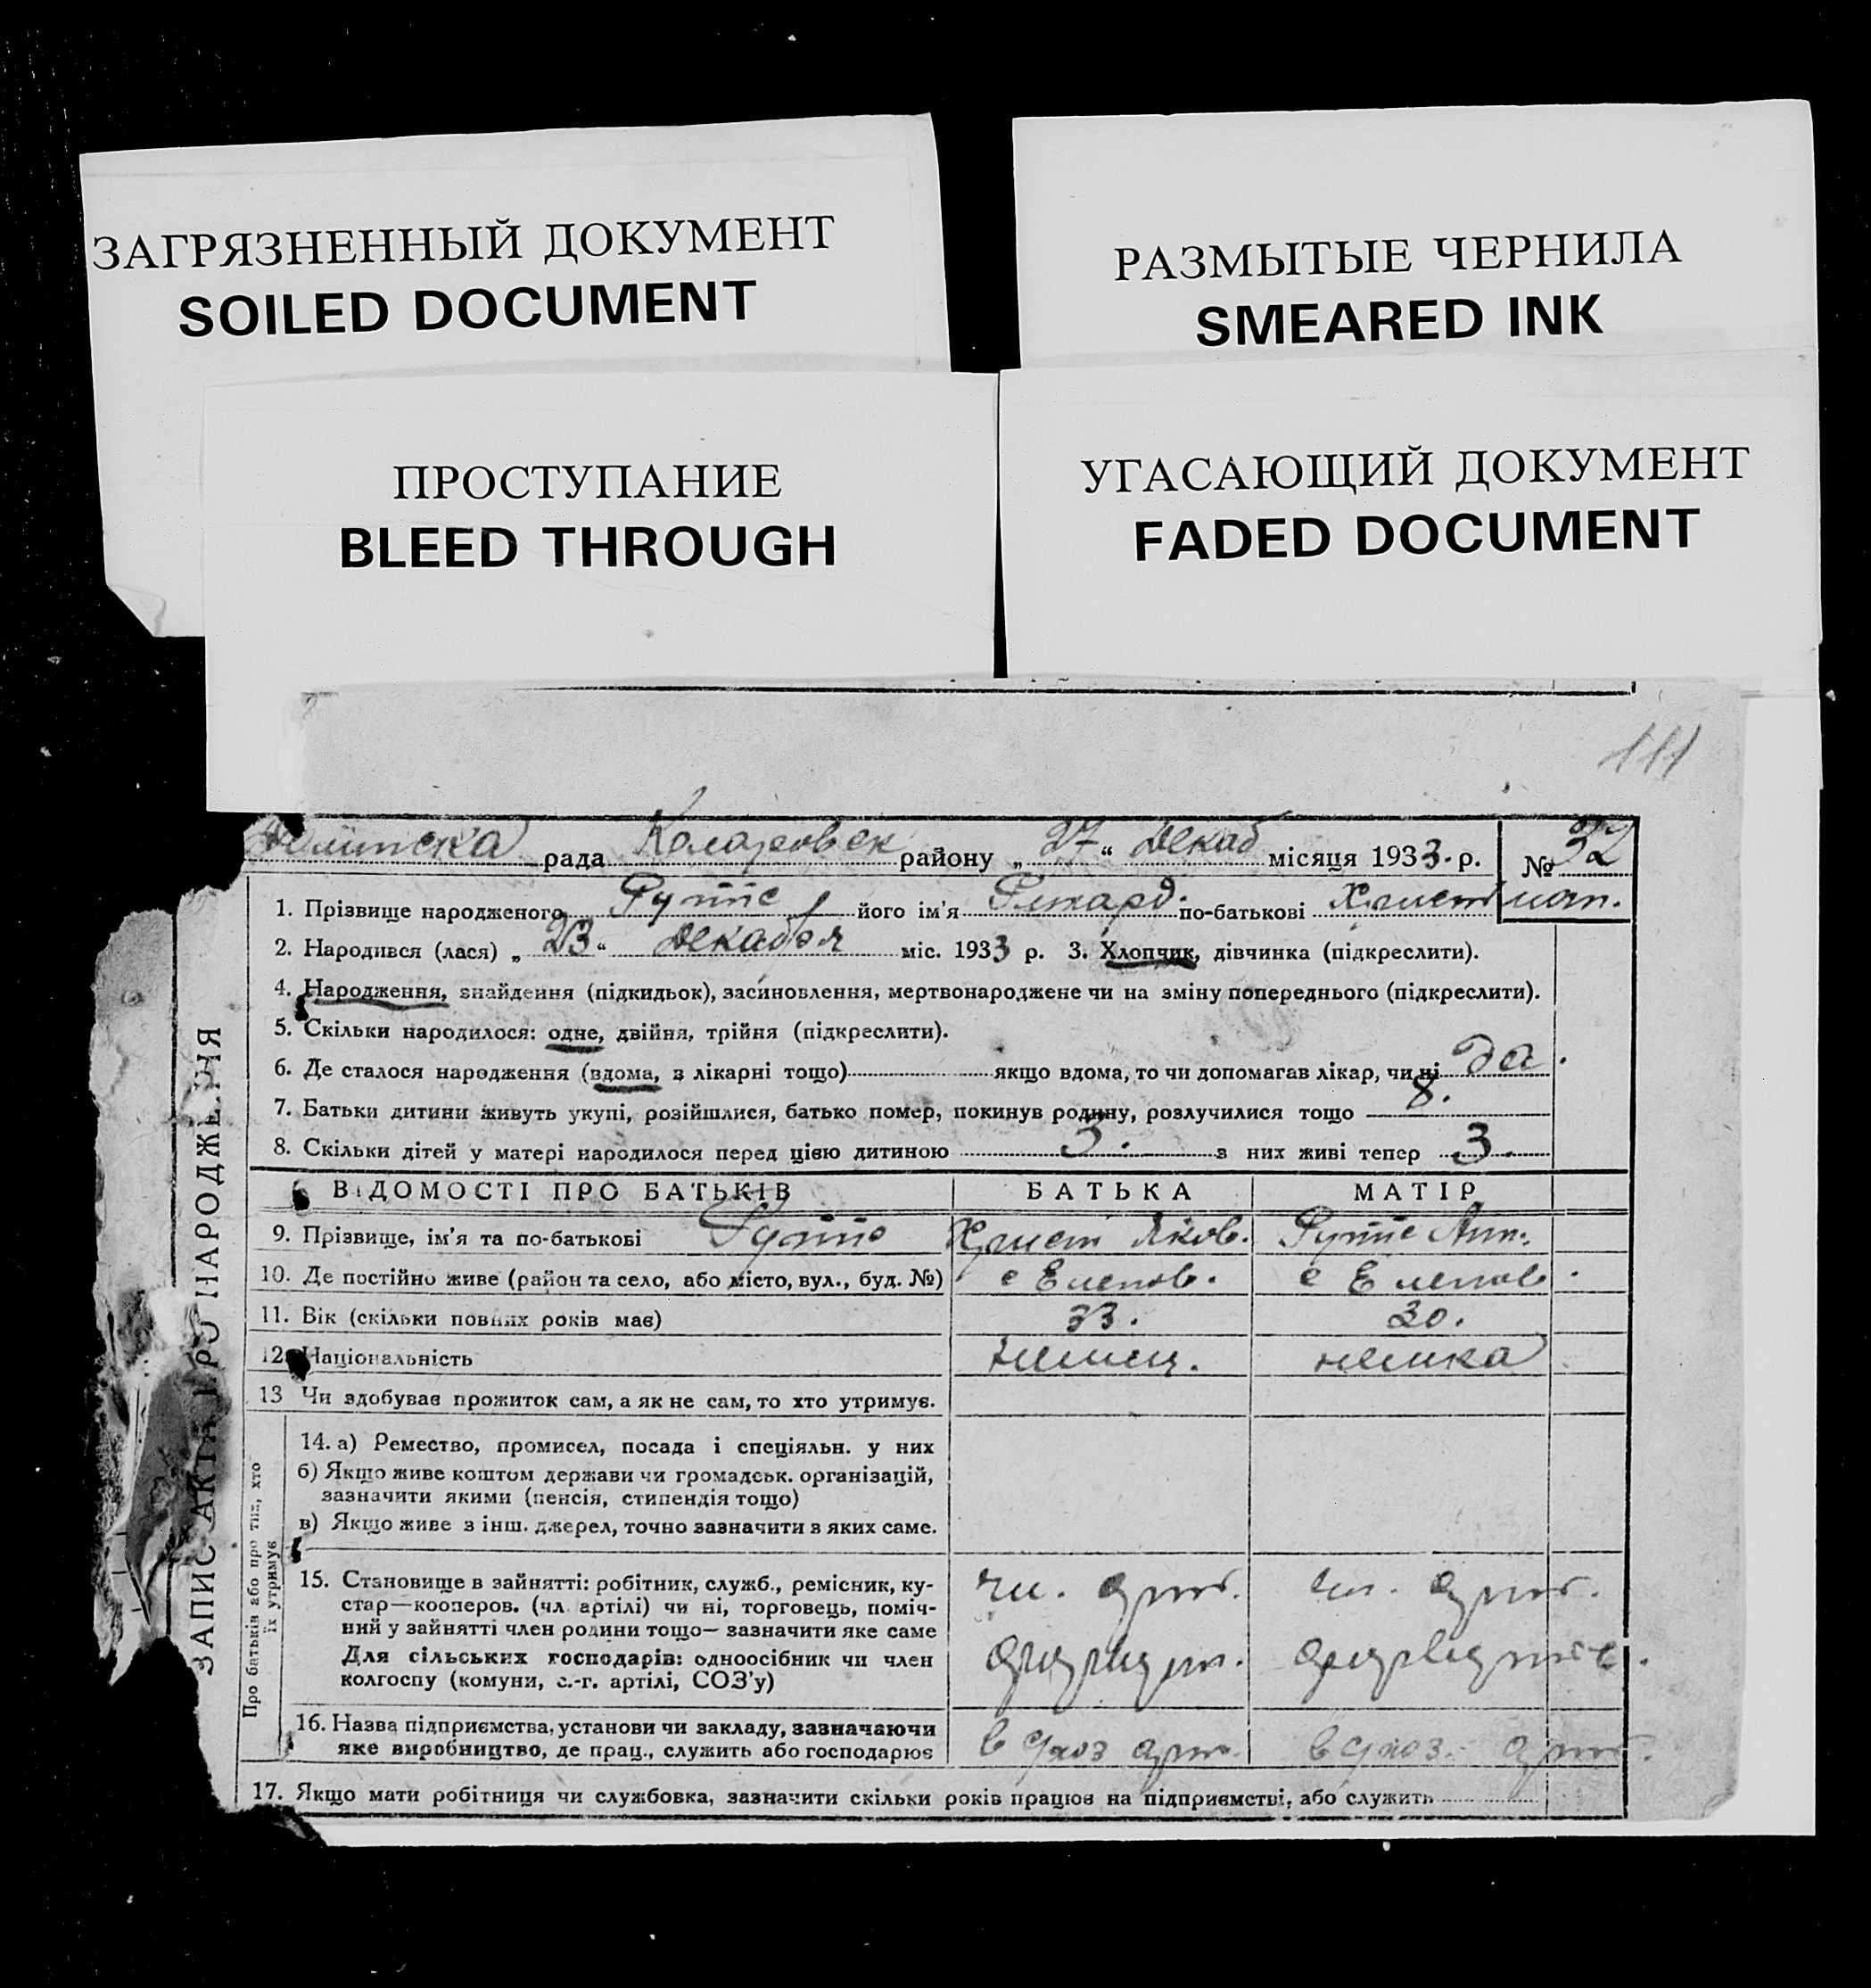 ЗАГРЯЗНЕННЫЙ ДОКУМЕНТ
SOILED DOCUMENT
РАЗМЫТЫЕ ЧЕРНИЛА
SMEARED INK
ПРОСТУПАНИЕ
BLEED THROUGH
УГАСАЮЩИЙ ДОКУМЕНТ
FADED DOCUMENT
111
рада району „ 27 “ Декаб місяця 1933 р. № 32
1. Прізвище народженого його ім'я по-батькові
2. Народився (лася) „ 23 “ Декабря міс. 1933 р. 3. Хлопчик, дівчинка (підкреслити).
4. Народження, знайдення (підкидьок), засиновлення, мертвонароджене чи на зміну попереднього (підкреслити).
5. Скільки народилося: одне, двійня, трійня (підкреслити).
6. Де сталося народження (вдома, в лікарні тощо) якщо вдома, то чи допомагав лікар, чи ні да.
7. Батьки дитини живуть укупі, розійшлися, батько помер, покинув родину, розлучилися тощо 8.
8. Скільки дітей у матері народилося перед цією дитиною 3. з них живі тепер 3.
ВІДОМОСТІ ПРО БАТЬКІВ БАТЬКА МАТІР
9. Прізвище, ім'я та по-батькові Яков.
10. Де постійно живе (район та село, або місто, вул., буд. №)
11. Вік (скільки повних років має) 33. 30.
12. Національність немец. немка
13 Чи здобуває прожиток сам, а як не сам, то хто утримує.
14. а) Ремество, промисел, посада і спеціяльн. у них
б) Якщо живе коштом держави чи громадськ. організацій,
зазначити якими (пенсія, стипендія тощо)
в) Якщо живе з інш. джерел, точно зазначити з яких саме.
15. Становище в зайнятті: робітник, служб., ремісник, ку-
стар—кооперов. (чл. артілі) чи ні, торговець, поміч-
ний у зайнятті член родини тощо— зазначити яке саме
Для сільських господарів: одноосібник чи член
колгоспу (комуни, с.-г. артілі, СОЗ'у)
16. Назва підприємства, установи чи закладу, зазначаючи
яке виробництво, де прац., служить або господарює
17. Якщо мати робітниця чи службовка, зазначити скільки років працює на підприємстві, або служить
ЗАПИС АКТА ПРО НАРОДЖЕННЯ
Про батьків або про тих, хто
їх утримує